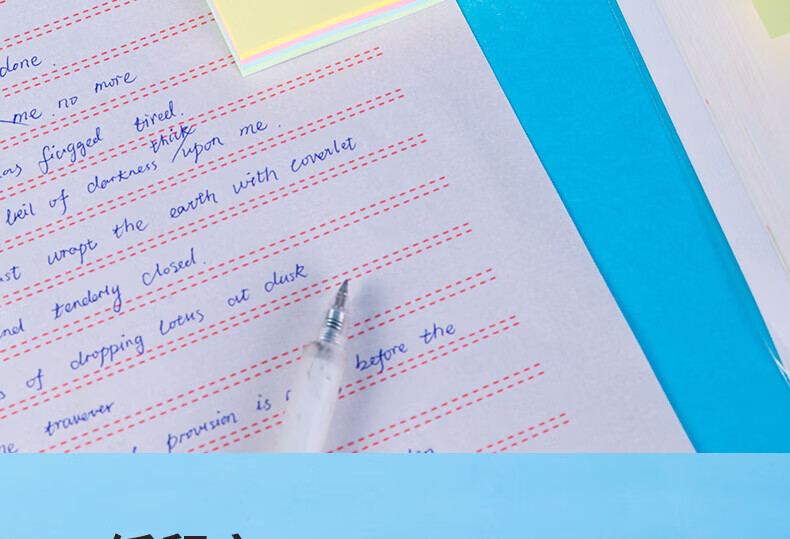 done.
me no more
figgged tired.
thick
veil of darkness upon me.
wrapt the earth with coverlet
and tenderly closed.
of dropping lotus at dusk
traverer
before the
provision is